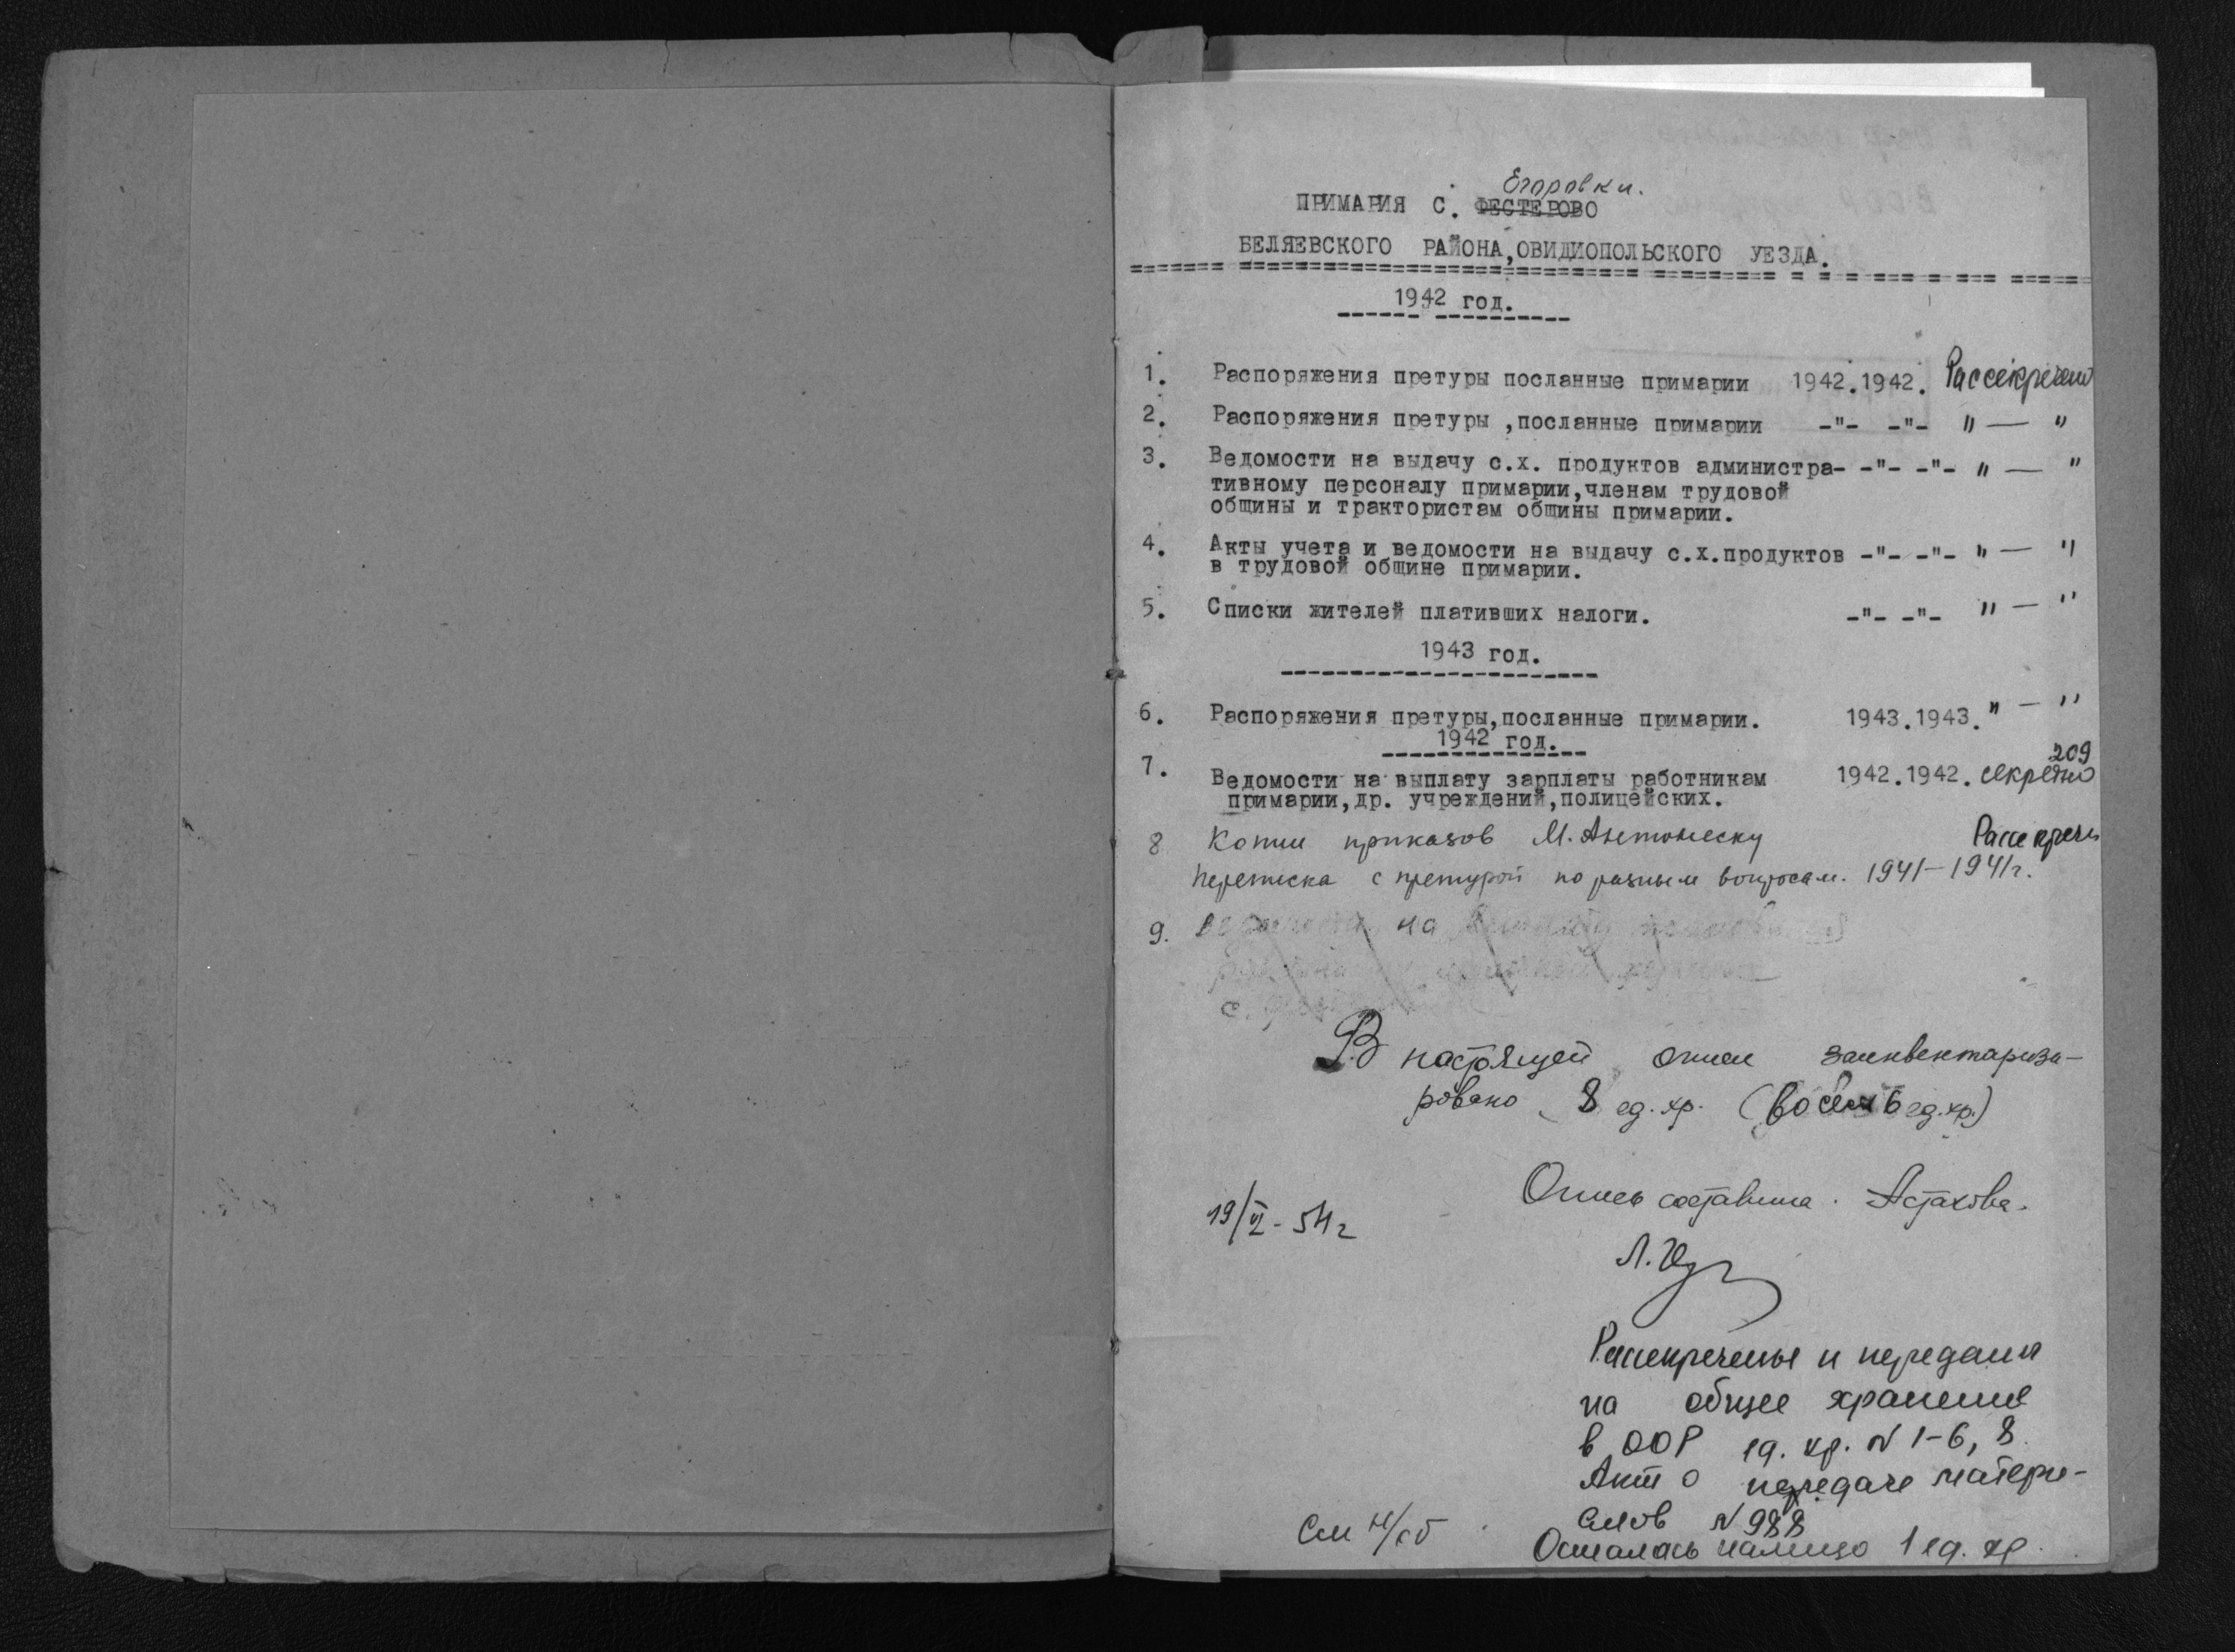 Егоровки.
ПРИМАРИЯ С. ФЕСТЕРОВО
БЕЛЯЕВСКОГО РАЙОНА,ОВИДИОПОЛЬСКОГО УЕЗДА.
1942 год.
1. Распоряжения претуры посланные примарии 1942.1942. Рассекречено
2. Распоряжения претуры ,посланные примарии -"- -"- " — "
3. Ведомости на выдачу с.х. продуктов администра- -"- -"- " — "
тивному персоналу примарии,членам трудовой
общины и трактористам общины примарии.
4. Акты учета и ведомости на выдачу с.х.продуктов -"- -"- " — "
в трудовой общине примарии.
5. Списки жителей плативших налоги. -"- -"- " — "
1943 год.
6. Распоряжения претуры,посланные примарии. 1943.1943. " — "
1942 год.
209
7. Ведомости на выплату зарплаты работникам 1942.1942. секретно
примарии,др. учреждений,полицейских.
8 Копии приказов М. Антонеску Рассекреч
Переписка с претурой по разным вопросам. 1941-1941г.
9. Ведомости на
с.
В настоящей описи заинвентаризи-
ровано 8 ед. хр. (восемь ед. хр.)
Опись составила. Астахова.
19/VI - 54 г
Рассекречены и переданы
на общее хранение
в ООР ед. хр. N 1-6, 8
Акт о передаче матери-
алов N 988
См н/об
Осталась налицо 1 ед. хр.